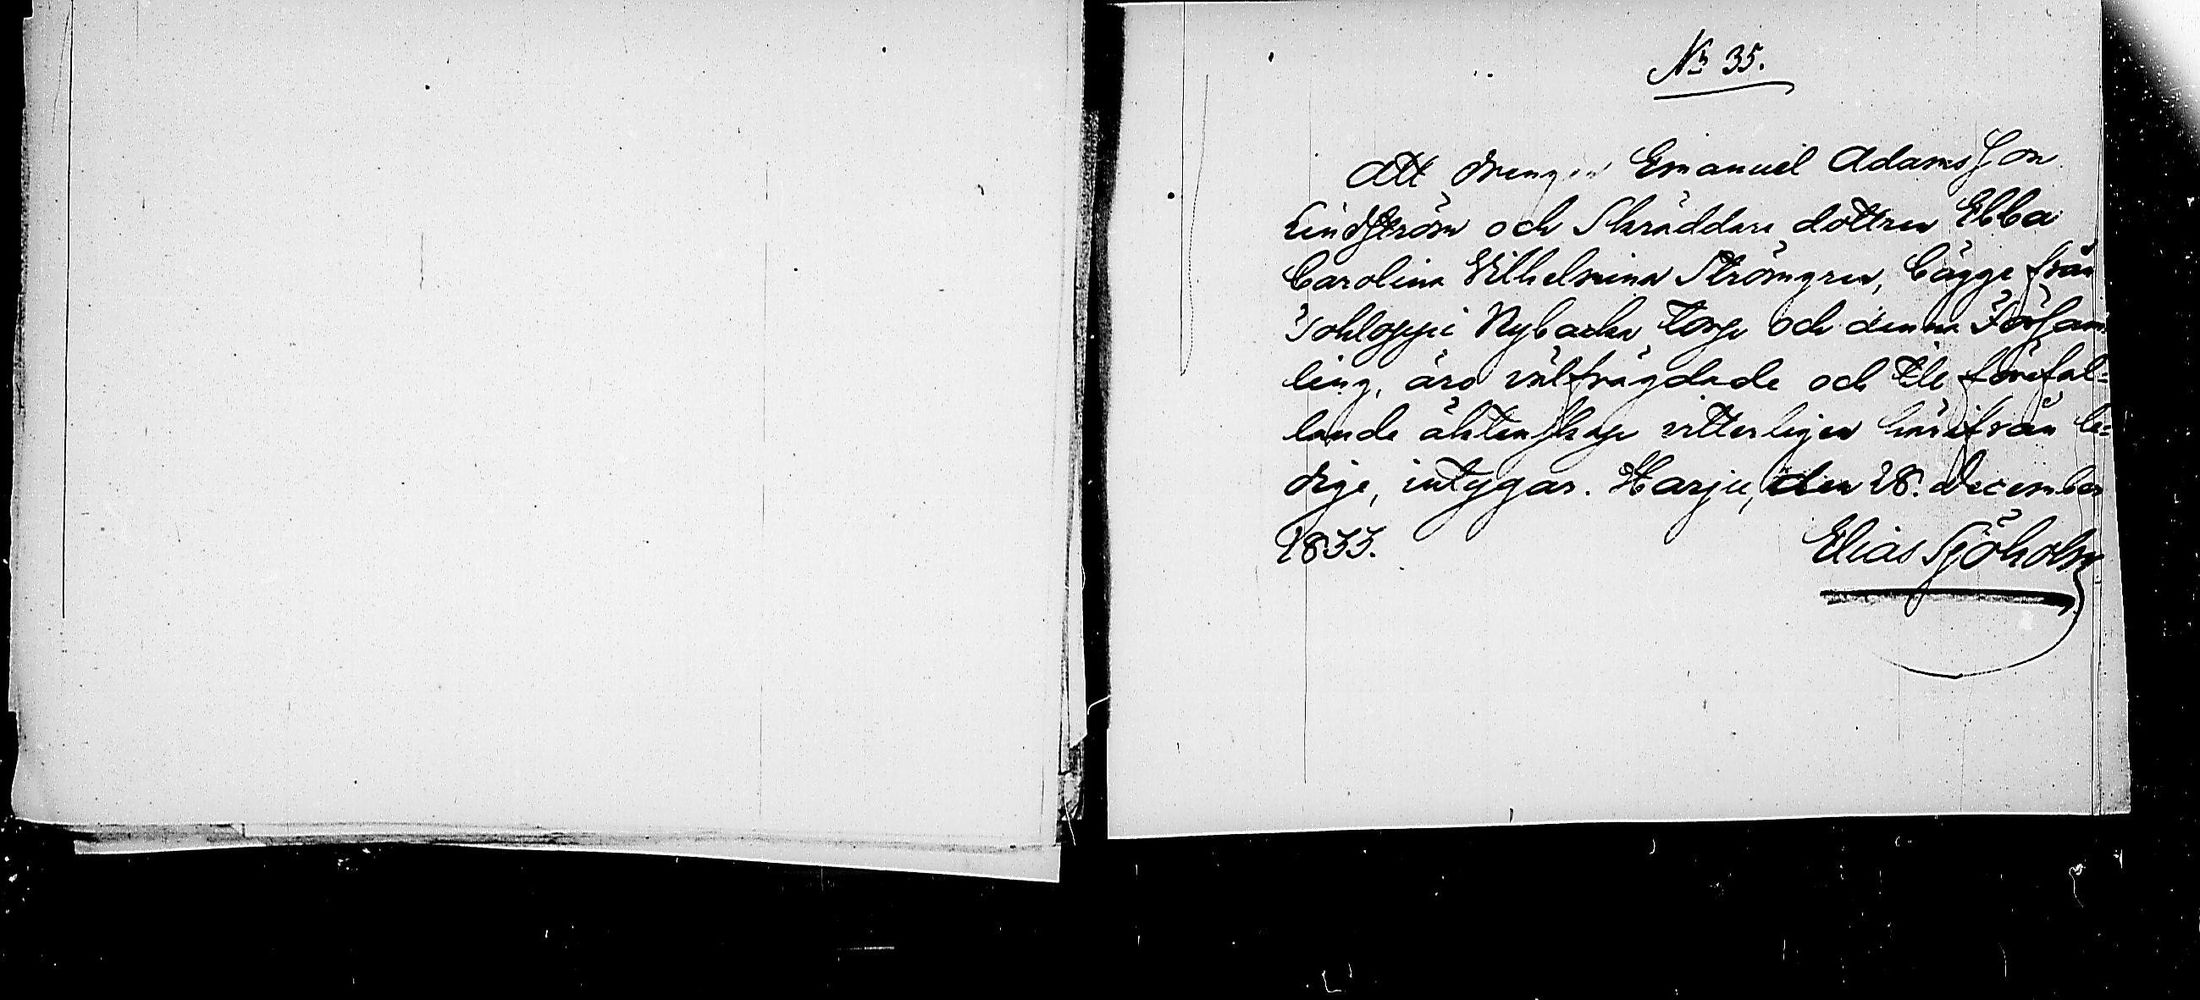 № 35.
Att drengen Emanuel Adamsson
Lindström och Skräddare dottren Ebba
Carolina Vilhelmina Strömgren, bägge från
Nybacka Torp och denna Försam-
ling, äro välfrägdade och till förefal=
lande äktenskap vitterligen härifrån le=
dige, intygar. Harju, den 28. December
1833. Elias Sjöholm